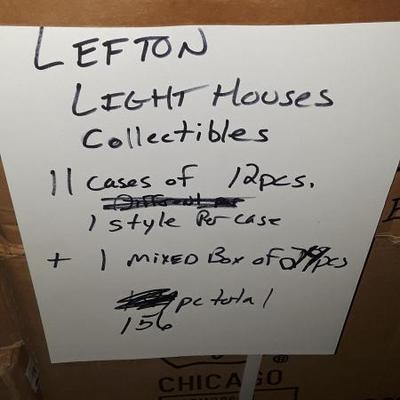 LEFTON
LIGHT Houses
Collectibles
11 cases of 12pcs.
1 style Per case
+ 1 MIXED Box of 24pcs
pc total
156
CHICAGO